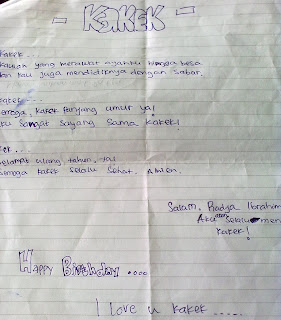 - KAKEK -
Kakek...
Kaulah yang merawat ayahku hingga besar
dan kau juga mendidiknya dengan sabar.
Kakek...
Semoga, kakek panjang umur ya!
Aku sangat sayang sama kakek!
Kakek...
Selamat ulang tahun, ya!
Semoga kakek selalu sehat. Amien.
Salam, Radya Ibrahim
Aku akan selalu men
kakek!
Happy Birthday ....
I love u kakek .....